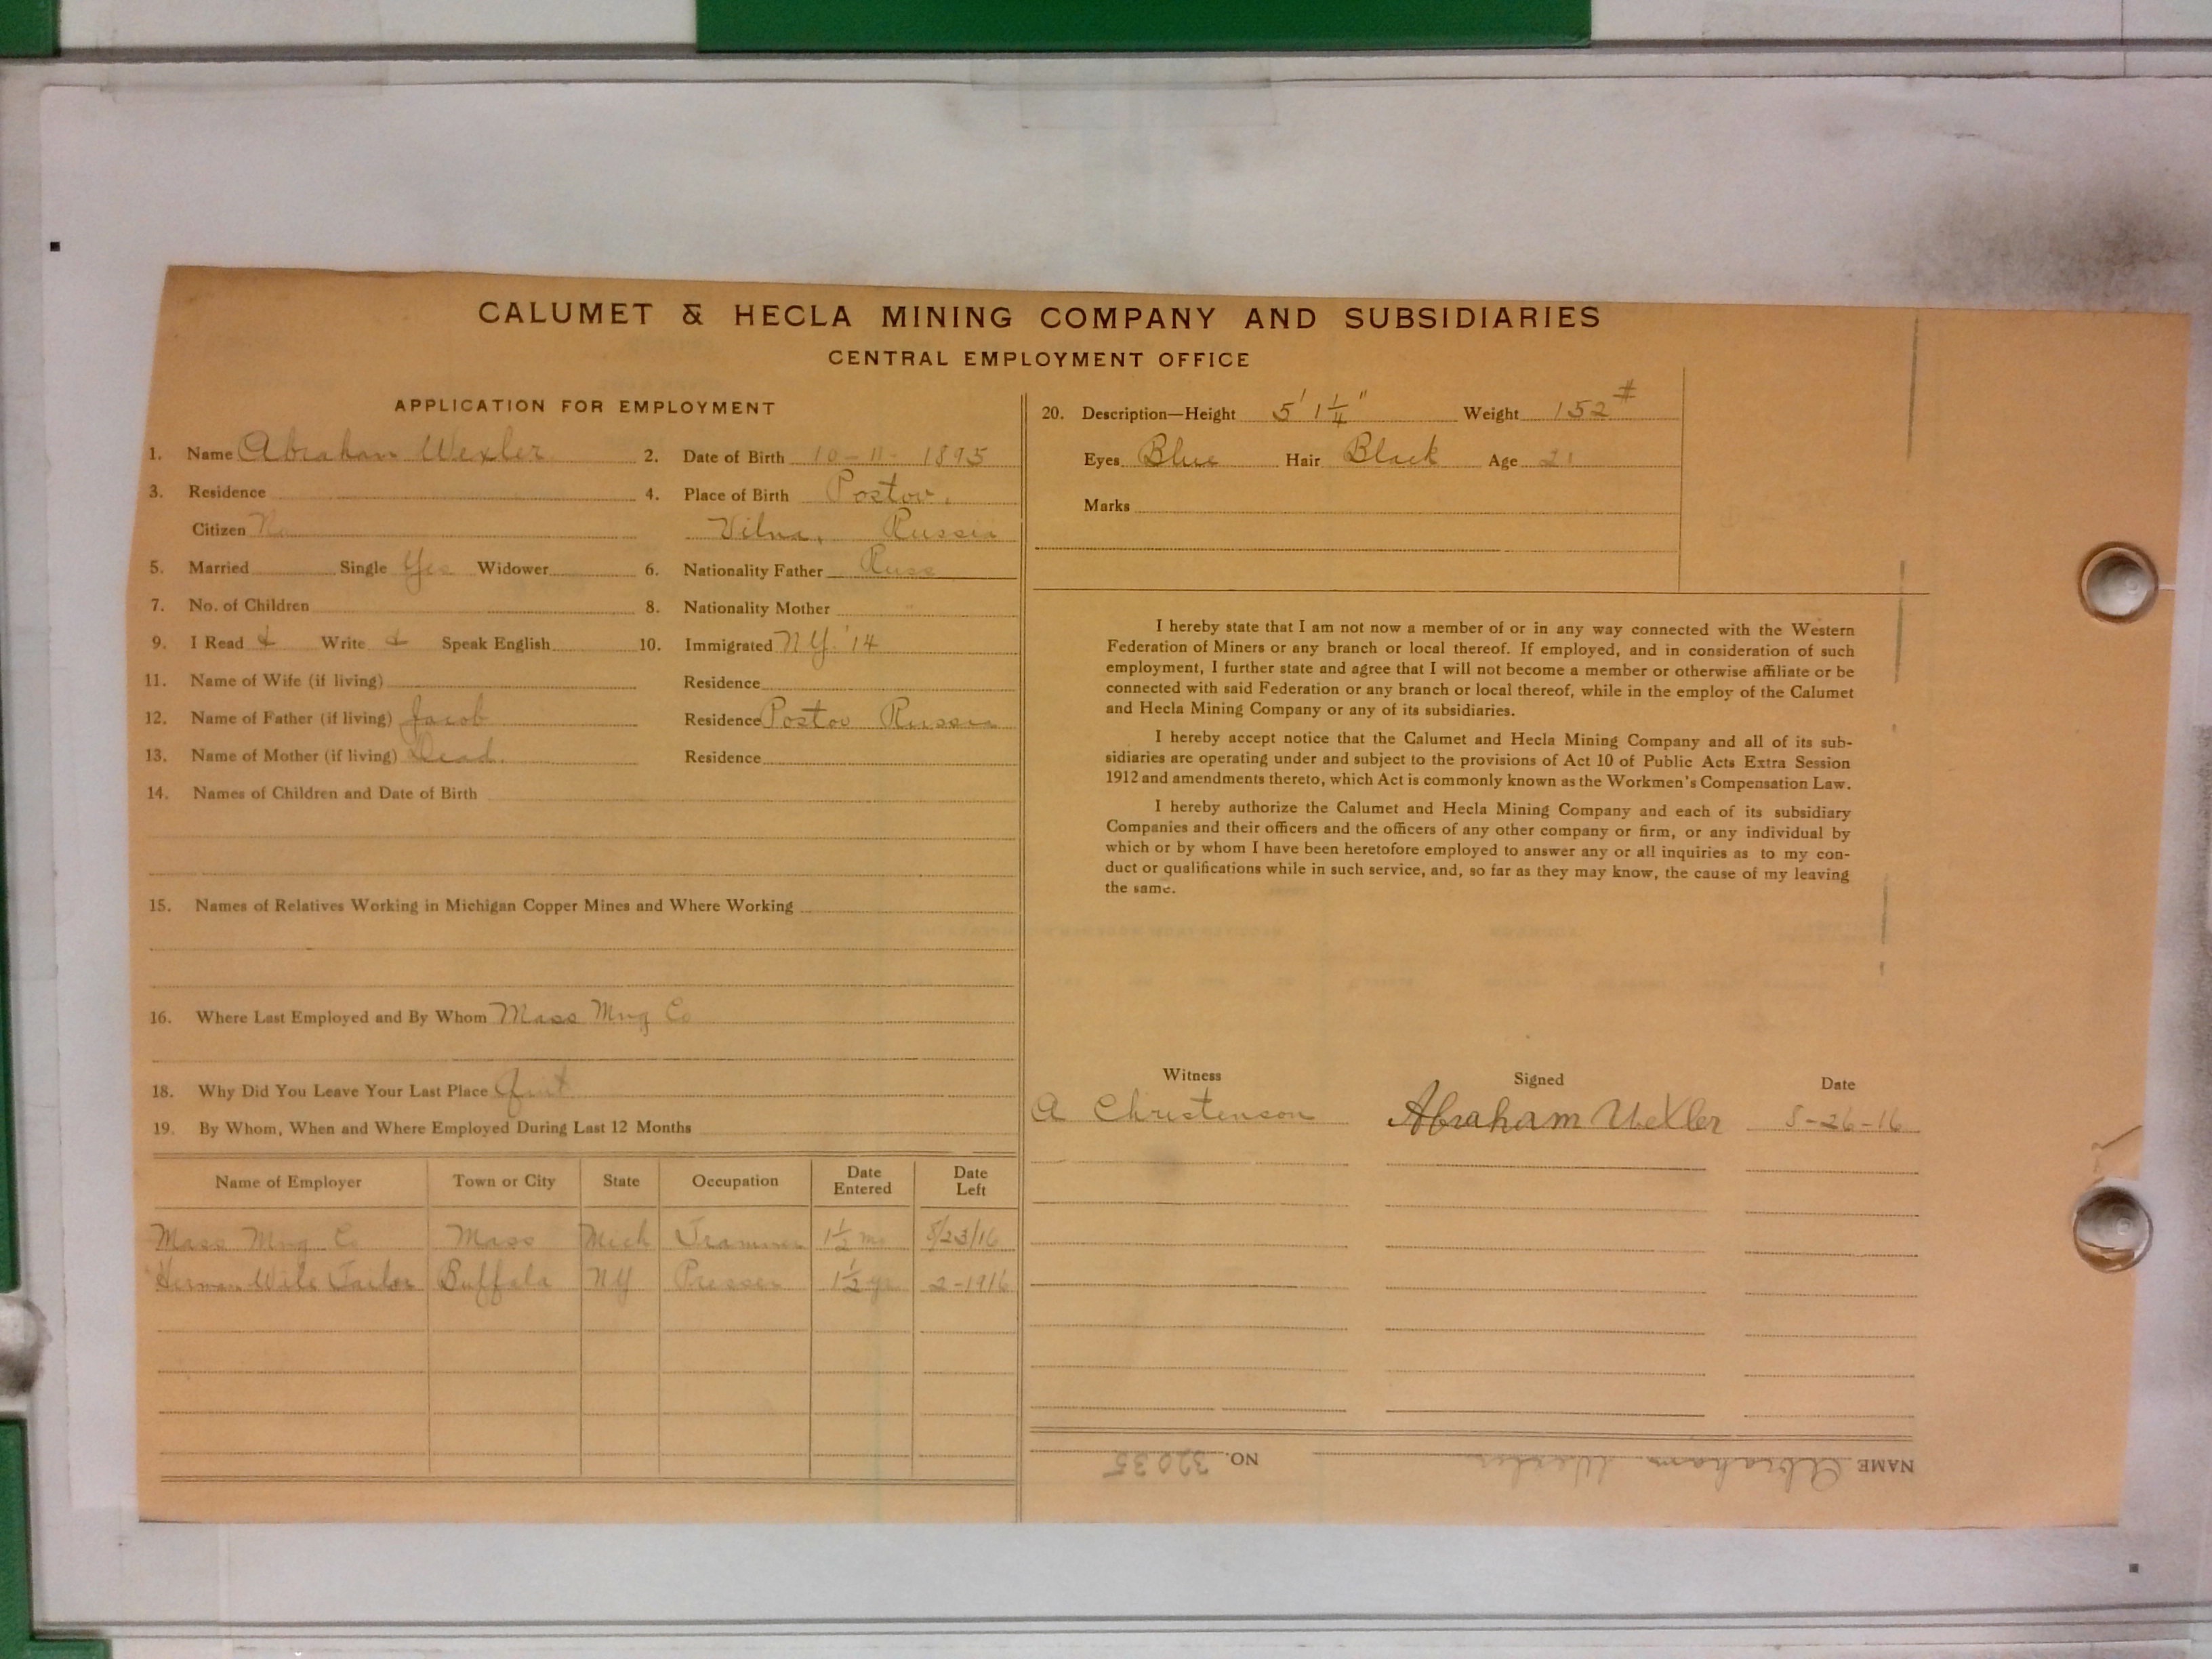 CALUMET & HECLA MINING COMPANY AND SUBSIDIARIES
CENTRAL EMPLOYMENT OFFICE
APPLICATION FOR EMPLOYMENT
1. Name Abraham Wexler 2. Date of Birth 10-11-1895
3. Residence 4. Place of Birth Postov,
Citizen No Vilna, Russia
5. Married Single Yes Widower 6. Nationality Father Russ
7. No. of Children 8. Nationality Mother
9. I Read & Write & Speak English 10. Immigrated NY. '14
11. Name of Wife (if living) Residence
12. Name of Father (if living) Jacob Residence Postov Russia
13. Name of Mother (if living) Dead. Residence
14. Names of Children and Date of Birth
15. Names of Relatives Working in Michigan Copper Mines and Where Working
16. Where Last Employed and By Whom Mass Mng Co
18. Why Did You Leave Your Last Place Quit
19. By Whom, When and Where Employed During Last 12 Months
Name of Employer Town or City State Occupation Date Entered Date Left
Mass Mng Co Mass Mich Trammer 1½ mo 5/23/16
Herman Wile Tailor Buffalo NY Presser 1½ yr 2-1916
20. Description—Height 5' 1¼" Weight 152#
Eyes Blue Hair Black Age 21
Marks
I hereby state that I am not now a member of or in any way connected with the Western
Federation of Miners or any branch or local thereof. If employed, and in consideration of such
employment, I further state and agree that I will not become a member or otherwise affiliate or be
connected with said Federation or any branch or local thereof, while in the employ of the Calumet
and Hecla Mining Company or any of its subsidiaries.
I hereby accept notice that the Calumet and Hecla Mining Company and all of its sub-
sidiaries are operating under and subject to the provisions of Act 10 of Public Acts Extra Session
1912 and amendments thereto, which Act is commonly known as the Workmen's Compensation Law.
I hereby authorize the Calumet and Hecla Mining Company and each of its subsidiary
Companies and their officers and the officers of any other company or firm, or any individual by
which or by whom I have been heretofore employed to answer any or all inquiries as to my con-
duct or qualifications while in such service, and, so far as they may know, the cause of my leaving
the same.
Witness Signed Date
A Christenson Abraham Wexler 5-26-16
NAME Abraham Wexler NO. 32035